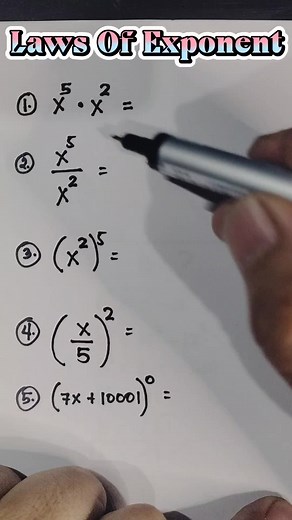 Laws Of Exponent
①. x⁵ · x² =
②. x⁵/x² =
③. (x²)⁵ =
④. (x/5)² =
⑤. (7x + 10001)⁰ =